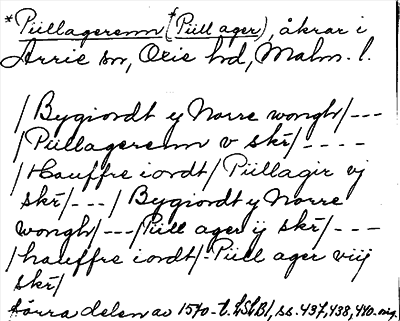 *Piillagerenn (*Piill ager), åkrar i
Arrie sn, Oxie hd, Malm. l.
/Bygiordt y Norre wongh/---
/Piillagerenn v skr̄/----
/Hauffre iordt/Piillagir vj
skr̄/---/Bygiordt y Norre
wongh/---/Piill ager ij skr̄/---
/hauffre iordt/-Piill ager viij
skr̄/
förra delen av 1570-t. LSLB1, ss. 437, 438, 440.